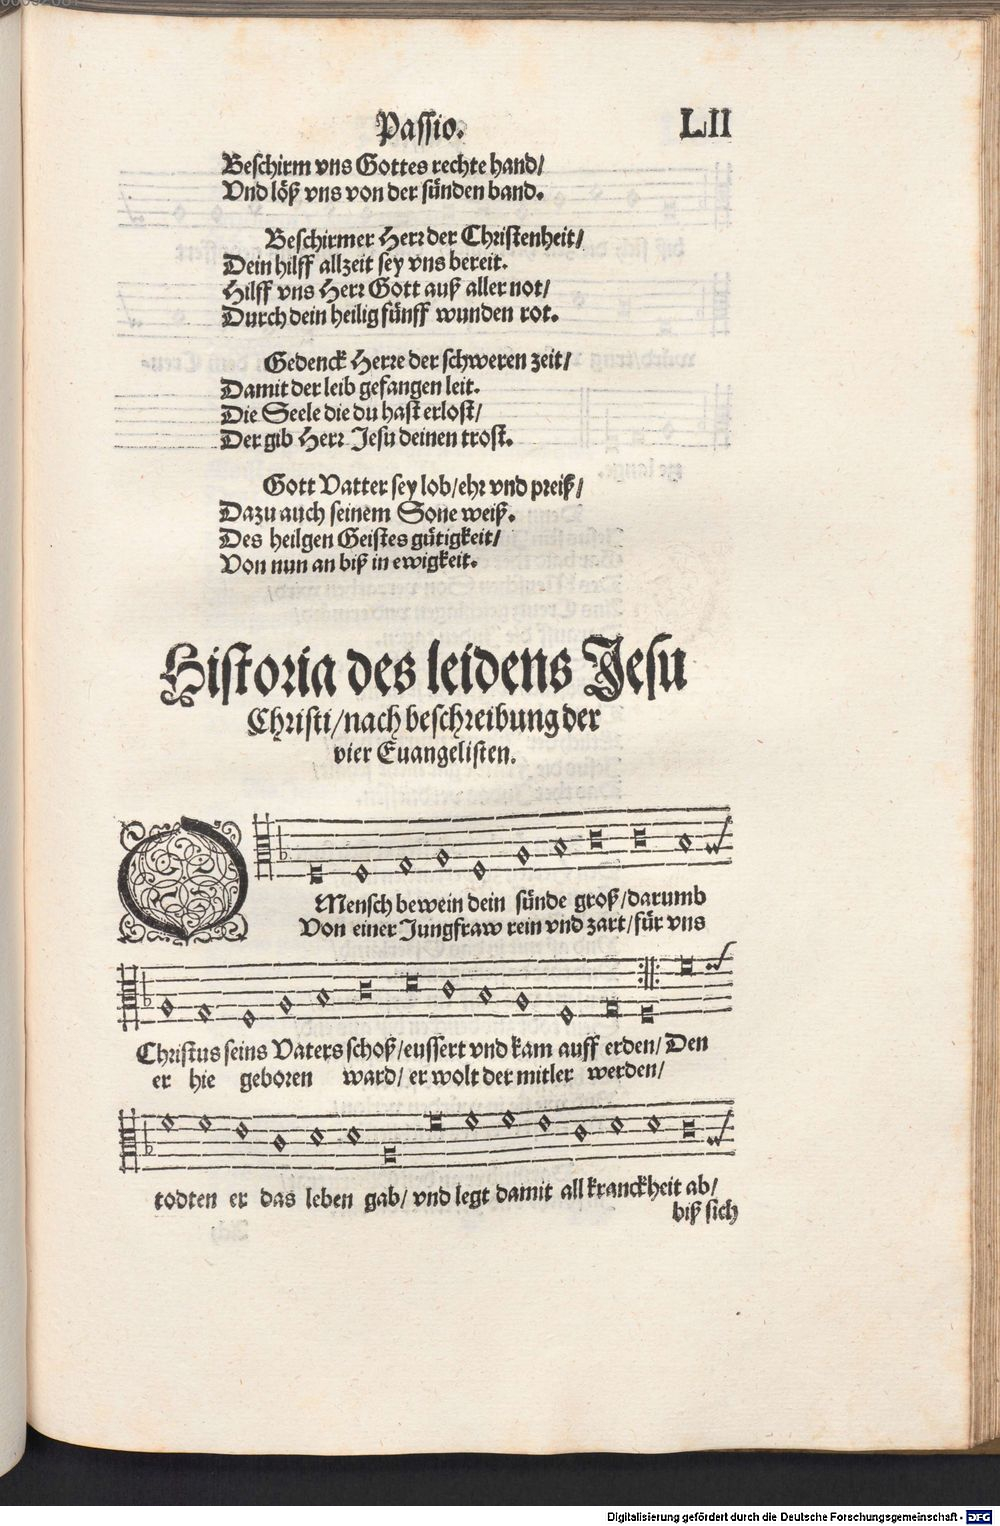 Passio.
LII
Beschirm vns Gottes rechte hand/
Vnd löß vns von der sünden band.
Beschirmer Herr der Christenheit/
Dein hilff allzeit sey vns bereit.
Hilff vns Herr Gott auß aller not/
Durch dein heilig fünff wunden rot.
Gedenck Herre der schweren zeit/
Damit der leib gefangen leit.
Die Seele die du hast erlost/
Der gib Herr Jesu deinen trost.
Gott Vatter sey lob/ehr vnd preiß/
Dazu auch seinem Sone weiß.
Des heilgen Geistes gütigkeit/
Von nun an biß in ewigkeit.
Historia des leidens Jesu
Christi/nach beschreibung der
vier Euangelisten.
O
Mensch bewein dein sünde groß/darumb
Von einer Jungfraw rein vnd zart/für vns
Christus seins Vaters schoß/eussert vnd kam auff erden/Den
er hie geboren ward/ er wolt der mitler werden/
todten er das leben gab/ vnd legt damit all kranckheit ab/
biß sich
Digitalisierung gefördert durch die Deutsche Forschungsgemeinschaft - DFG